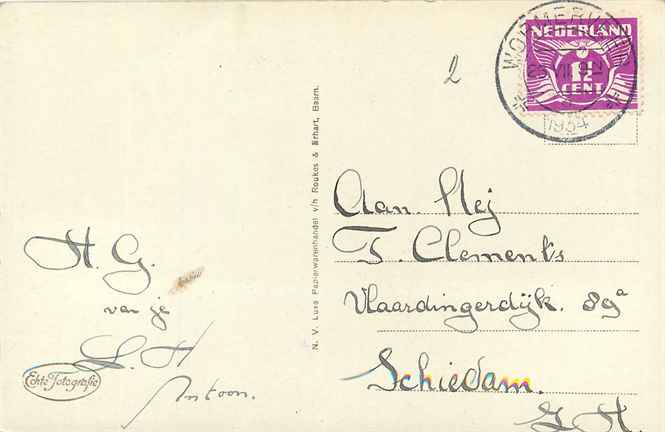 2
WORMERVEER
1934
NEDERLAND
1½
CENT
N. V. Luxe Papierwarenhandel v/h Roukes & Erhart, Baarn.
Aan. Mej
T. Clements
Vlaardingerdijk. 89a
Schiedam.
Z. H.
H. G.
van je
L. H
Antoon.
Echte Fotografie